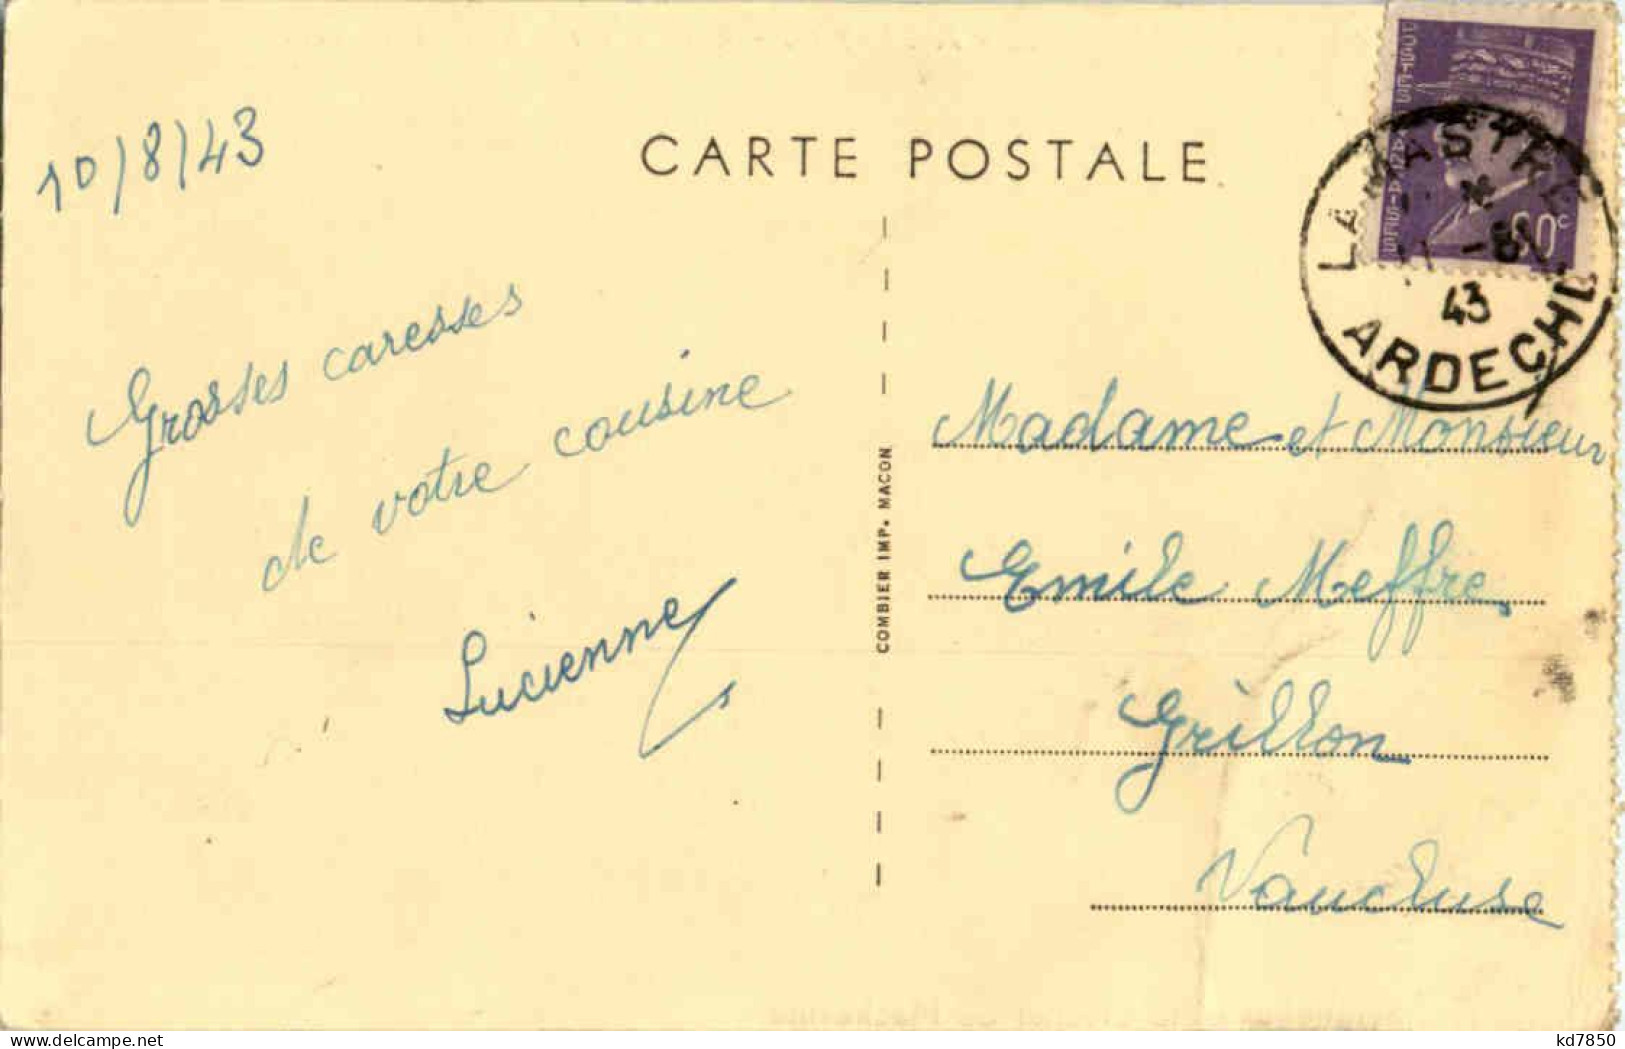 CARTE POSTALE
10/8/43
Grosses caresses
de votre cousine
Lucienne
COMBIER IMP. MACON
POSTES FRANÇAISES
60c
LAMASTRE
11 -8
43
ARDECHE
Madame et Monsieur
Emile Meffre
Grillon
Vaucluse
kd7850